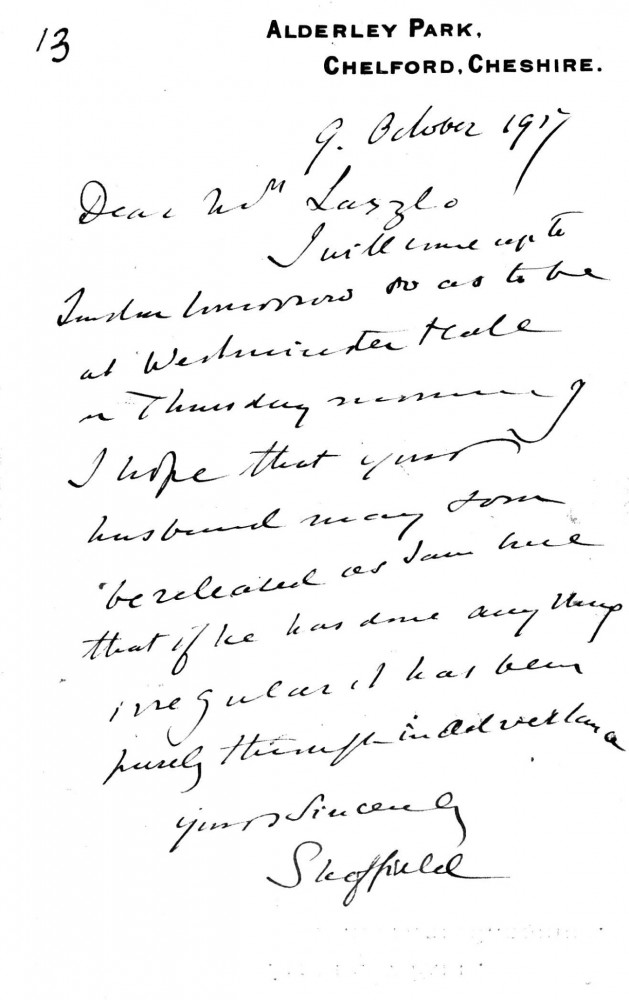 13
ALDERLEY PARK,
CHELFORD, CHESHIRE.
9. October 1917
Dear Mrs Laszlo
I will come up to
London tomorrow so as to be
at Westminster Hall
on Thursday morning
I hope that your
husband may soon
be released as I am sure
that if he has done anything
irregular it has been
purely through inadvertance
yours sincerely
Sheffield